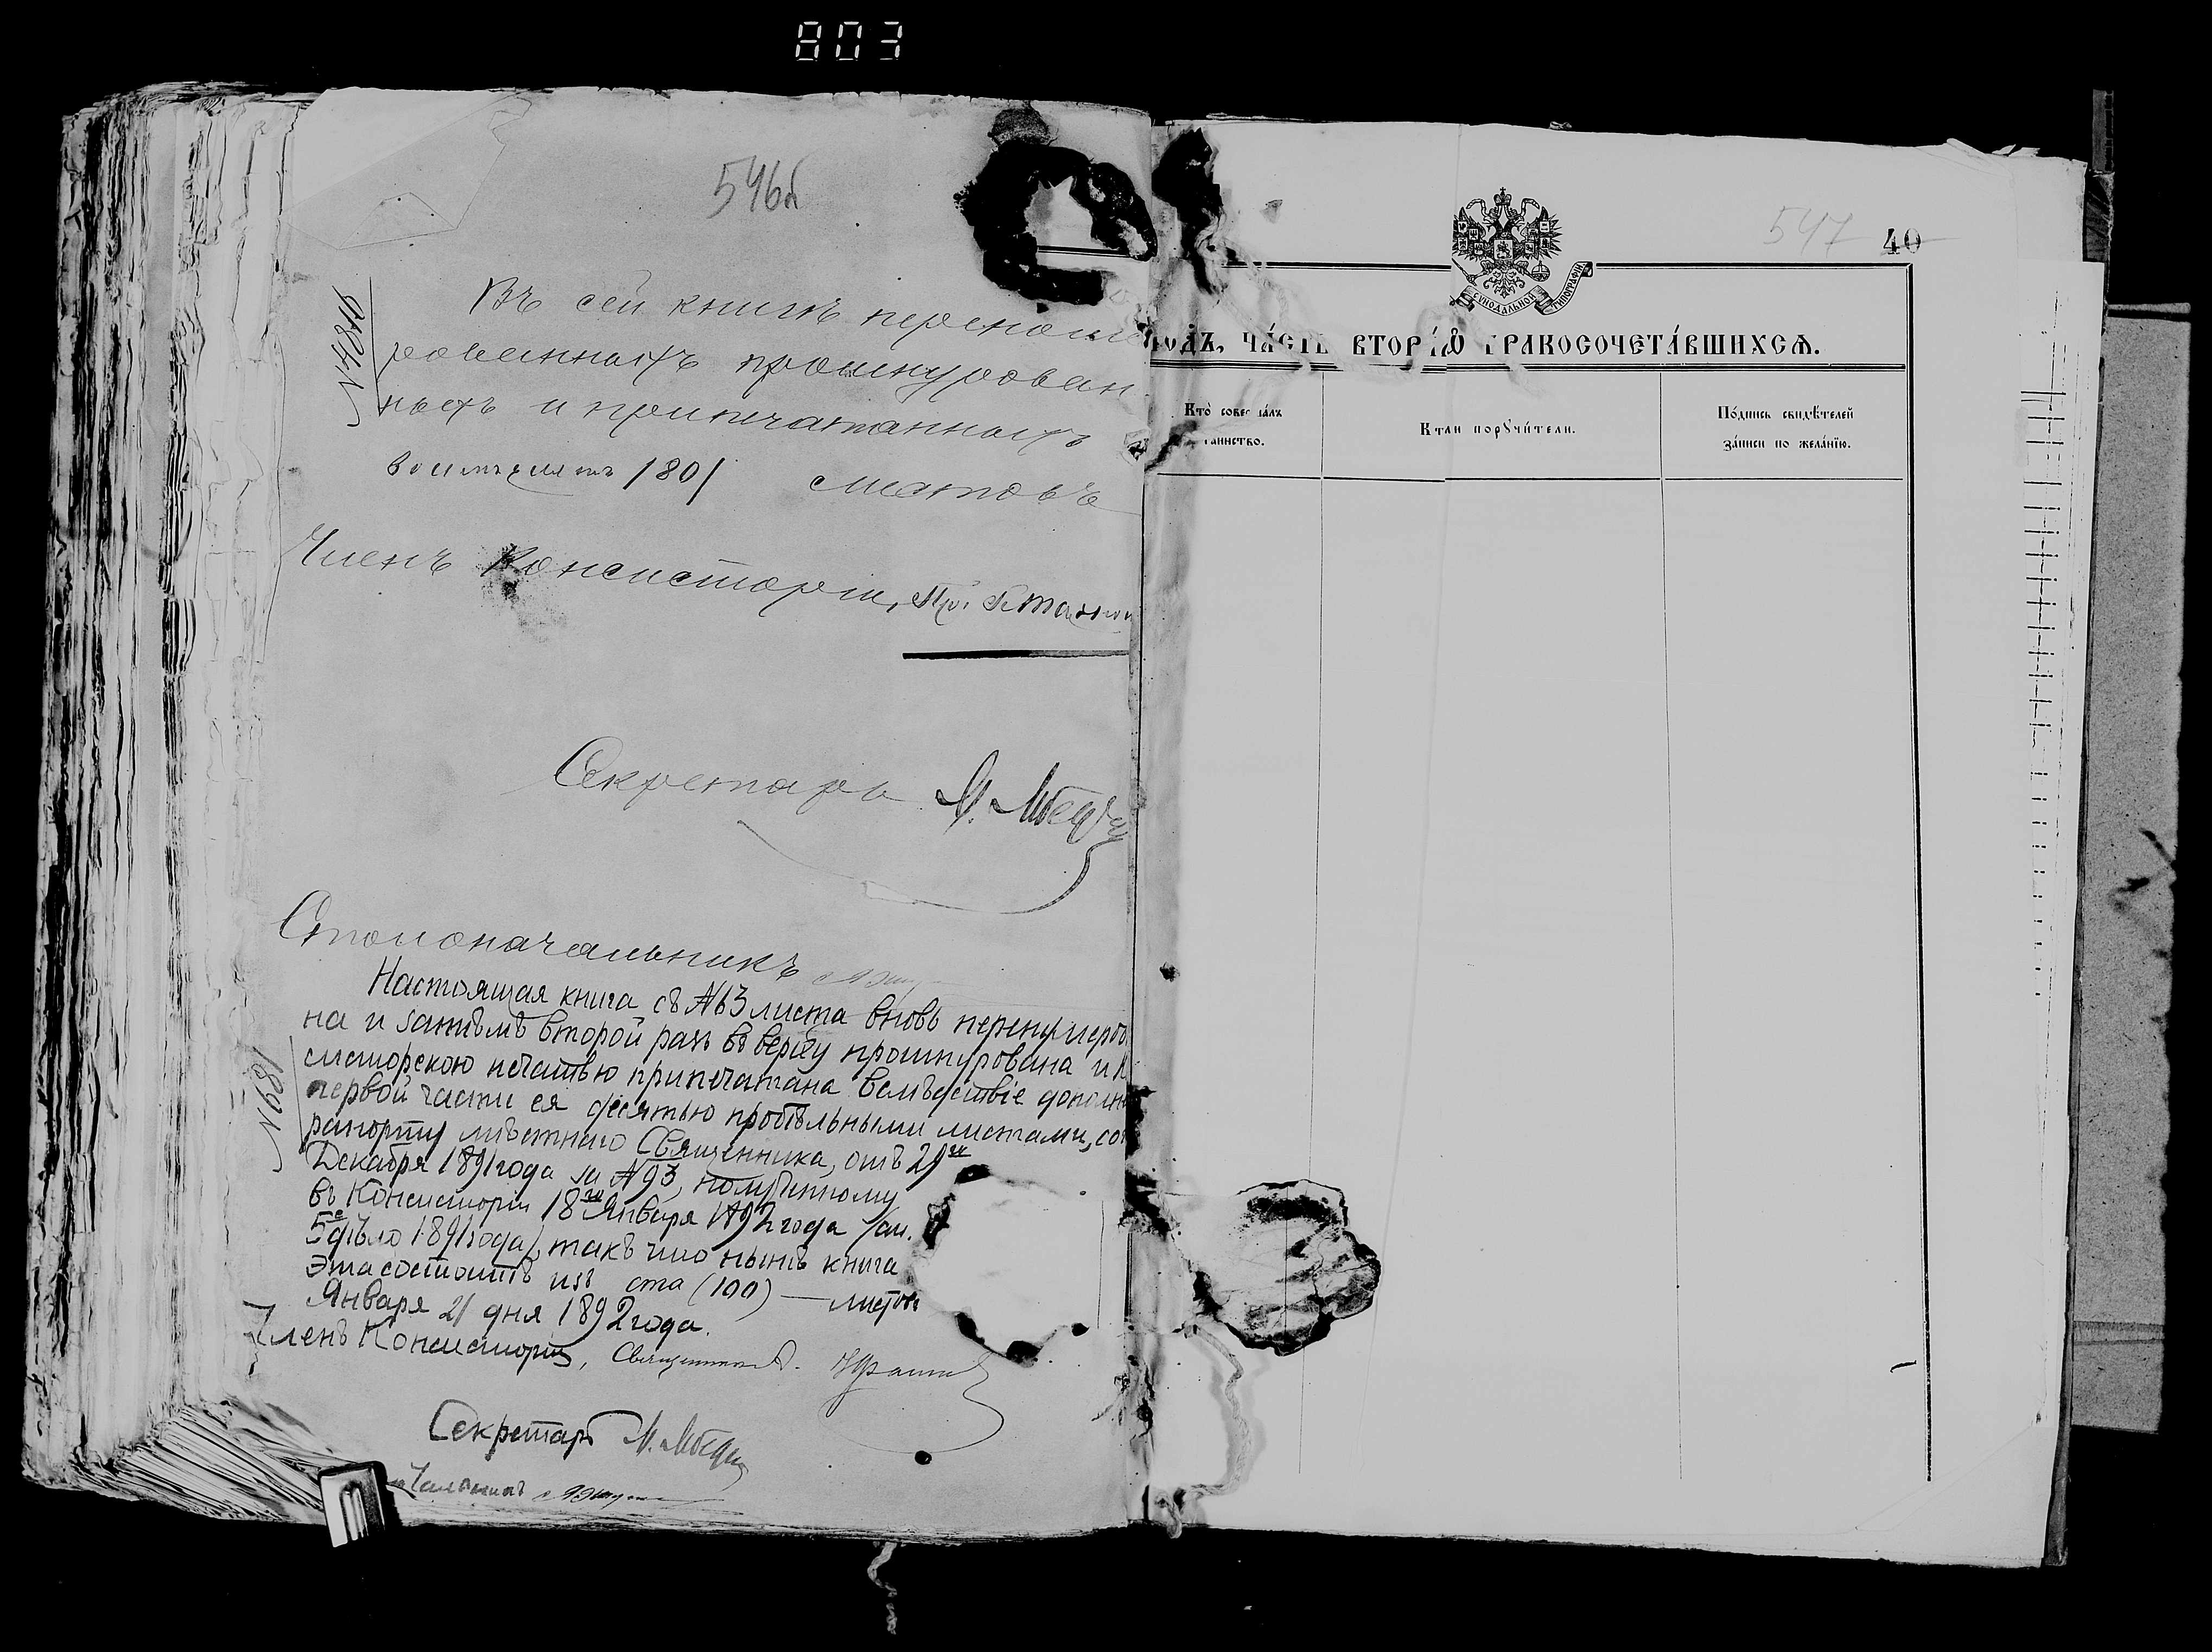 803
546б
Въ сей книгѣ переноме
рованныхъ прошнурован
ныхъ и припечатанныхъ
восемьдесятъ /80/ листовъ
Членъ Консисторіи, Пр.
Секретарь
Столоначальникъ
Настоящая книга съ №63 листа вновь перенумеро
на и затѣмъ второй разъ въ верху прошнурована и К
систорскою печатью припечатана вслѣдствіе дополн
первой части ея десятью пробѣльными листами, со
рапорту мѣстнаго Священника, отъ 29го
Декабря 1891 года за №93, полученному
въ Консисторіи 18го Января 1892 года /ст.
5е дѣло 1891 года/, такъ что нынѣ книга
эта состоитъ изъ ста (100) — листовъ
Января 21 дня 1892 года.
Членъ Консисторіи, Священникъ
Секретарь
№681
547 40
СѴНОДАЛЬНОЙ ТИПОГРАФІИ
ГОДЪ, ЧА́СТЬ ВТОРА́Ѧ Ѡ БРАКОСОЧЕТА́ВШИХСѦ.
Кто̀ соверша́лъ
таинство.
Кт᲏ поручи́тели.
По́дпись свидѣ́телей
за́писи по жела́нїю.